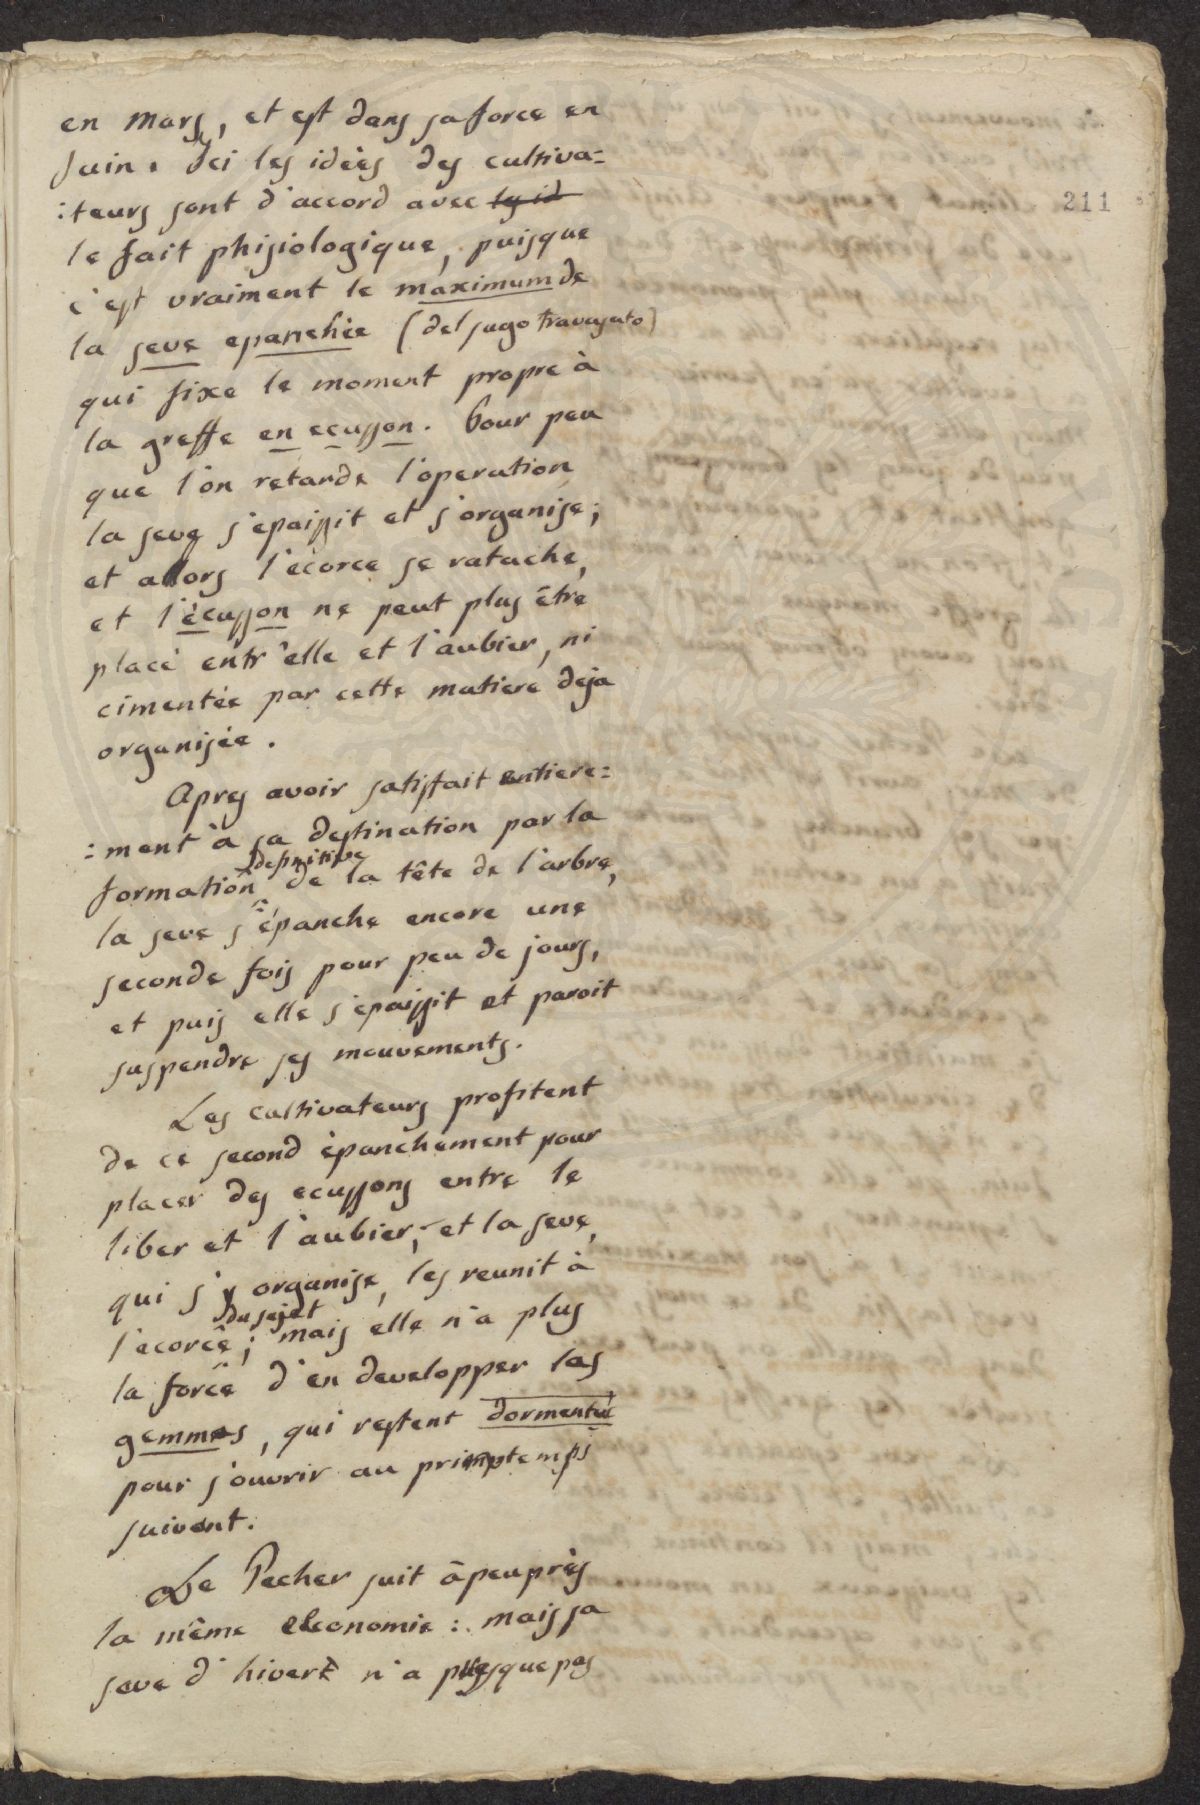 en Mars, et est dans sa force en
Juin. Ici les idées des cultiva=
:teurs sont d'accord avec les id
211
le fait phisiologique, puisque
c'est vraiment le maximum de
la seve epanchée (del sugo travasato)
qui fixe le moment propre à
la greffe en ecusson. Pour peu
que l'on retarde l'operation,
la seve s'epaissit et s'organise;
et allors l'écorce se ratache,
et l'écusson ne peut plus être
placé entr'elle et l'aubier, ni
cimentée par cette matiere deja
organisée.
Apres avoir satisfait entiere=
:ment à sa destination par la
definitive
formation de la tête de l'arbre,
la seve s'épanche encore une
seconde fois pour peu de jours,
et puis elle s'epaissit et paroit
suspendre ses mouvements.
Les cultivateurs profitent
de ce second épanchement pour
placer des ecussons entre le
liber et l'aubier; et la seve,
qui s'y organise, les reunit à
du sujet
l'ecorce; mais elle n'a plus
la force d'en developper les
gemmes, qui restent
pour s'ouvrir au primptemps
suivant.
Le Pecher suit àpeuprès
la même economie: mais sa
seve d'hivert n'a presque pas